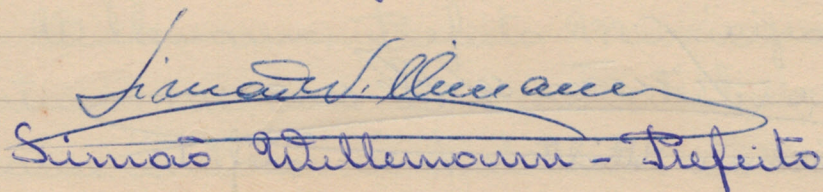 Simão Willemann
Simão Willemann - Prefeito